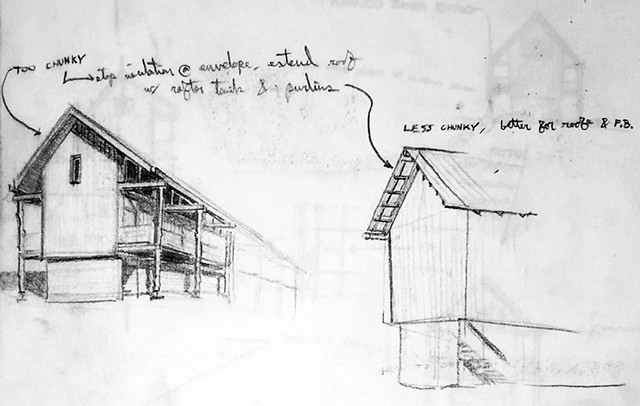 TOO CHUNKY
stop insulation @ envelope, extend roof
w/ rafter tails & purlins
LESS CHUNKY, better for roofs & P.B.